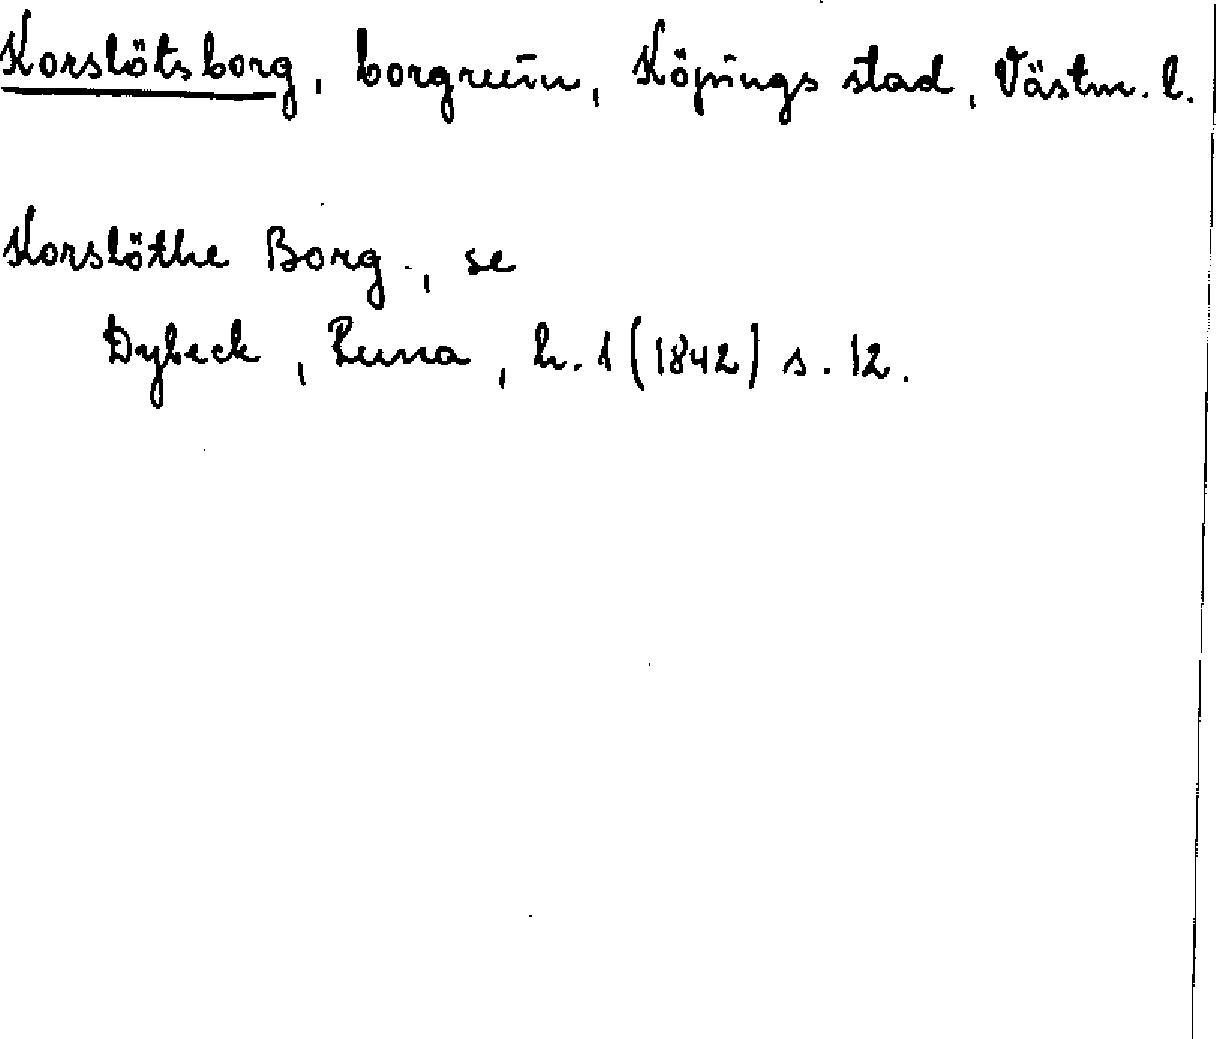 Korslötsborg, borgruin, Köpings stad, Västm. l.
Korslöthe Borg, se
Dybeck, Runa, h. 1 (1842) s. 12.